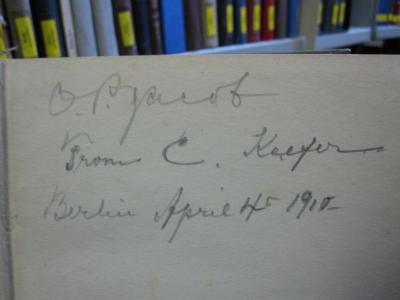 O. P. Jacob
From C. Keefer
Berlin April 4th 1910